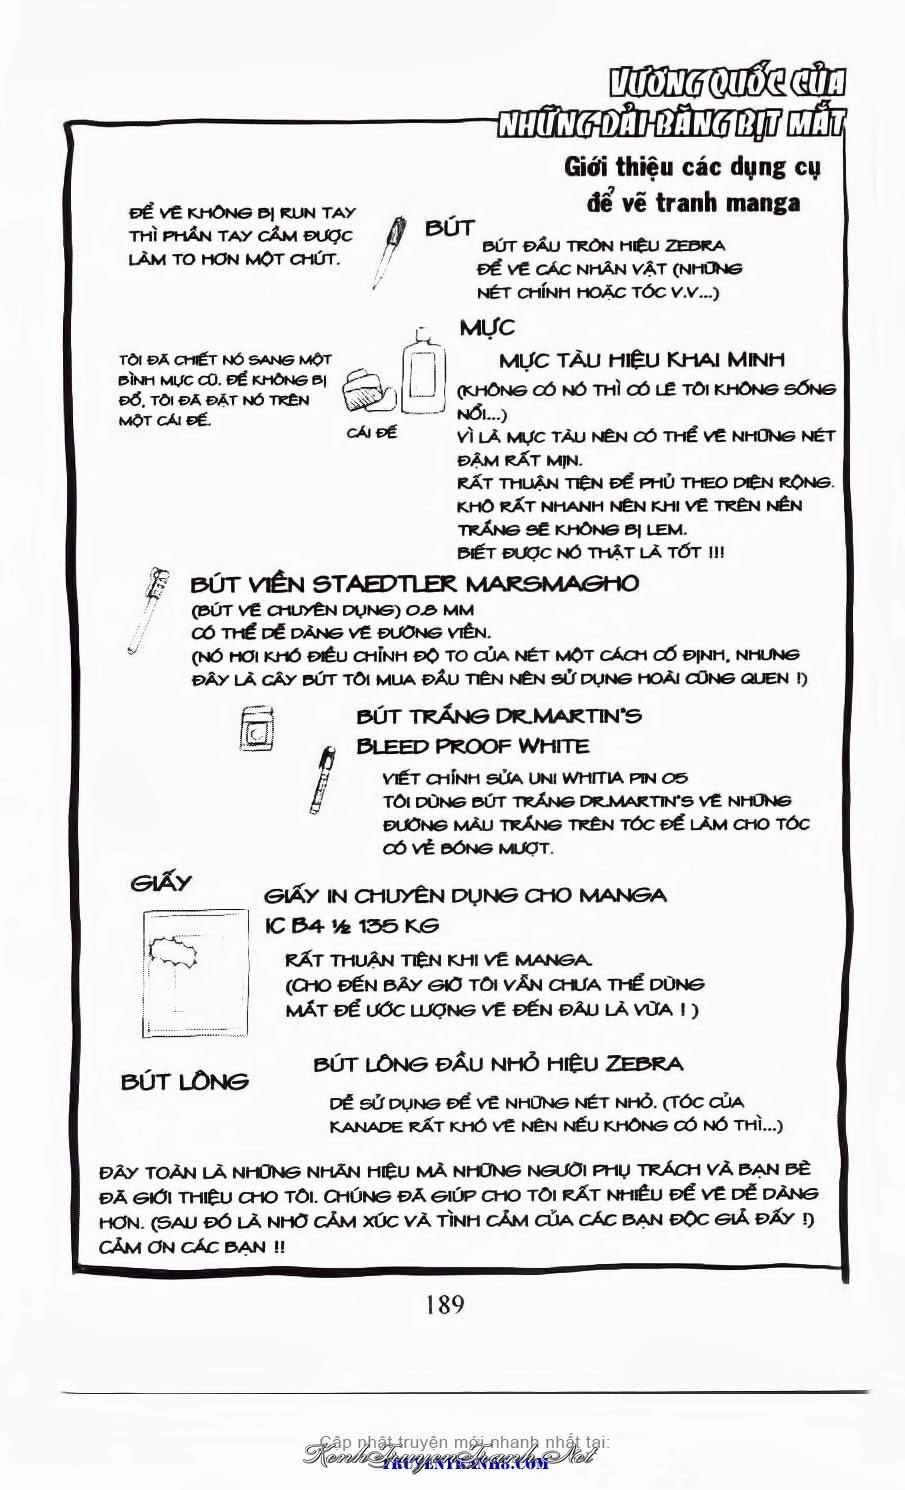 VƯƠNG QUỐC CỦA
NHỮNG DẢI BĂNG BỊT MẮT
Giới thiệu các dụng cụ
để vẽ tranh manga
ĐỂ VẼ KHÔNG BỊ RUN TAY
THÌ PHẦN TAY CẦM ĐƯỢC
LÀM TO HƠN MỘT CHÚT.
BÚT
BÚT ĐẦU TRÒN HIỆU ZEBRA
ĐỂ VẼ CÁC NHÂN VẬT (NHỮNG
NÉT CHÍNH HOẶC TÓC V.V...)
MỰC
MỰC TÀU HIỆU KHAI MINH
(KHÔNG CÓ NÓ THÌ CÓ LẼ TÔI KHÔNG SỐNG
NỔI...)
VÌ LÀ MỰC TÀU NÊN CÓ THỂ VẼ NHỮNG NÉT
ĐẬM RẤT MỊN.
RẤT THUẬN TIỆN ĐỂ PHỦ THEO DIỆN RỘNG.
KHÔ RẤT NHANH NÊN KHI VẼ TRÊN NỀN
TRẮNG SẼ KHÔNG BỊ LEM.
BIẾT ĐƯỢC NÓ THẬT LÀ TỐT !!!
TÔI ĐÃ CHIẾT NÓ SANG MỘT
BÌNH MỰC CŨ. ĐỂ KHÔNG BỊ
ĐỔ, TÔI ĐÃ ĐẶT NÓ TRÊN
MỘT CÁI ĐẾ.
CÁI ĐẾ
BÚT VIỀN STAEDTLER MARSMAGHO
(BÚT VẼ CHUYÊN DỤNG) 0.8 MM
CÓ THỂ DỄ DÀNG VẼ ĐƯỜNG VIỀN.
(NÓ HƠI KHÓ ĐIỀU CHỈNH ĐỘ TO CỦA NÉT MỘT CÁCH CỐ ĐỊNH, NHƯNG
ĐÂY LÀ CÂY BÚT TÔI MUA ĐẦU TIÊN NÊN SỬ DỤNG HOÀI CŨNG QUEN !)
BÚT TRẮNG DR.MARTIN'S
BLEED PROOF WHITE
VIẾT CHỈNH SỬA UNI WHITIA PIN 05
TÔI DÙNG BÚT TRẮNG DR.MARTIN'S VẼ NHỮNG
ĐƯỜNG MÀU TRẮNG TRÊN TÓC ĐỂ LÀM CHO TÓC
CÓ VẺ BÓNG MƯỢT.
GIẤY
GIẤY IN CHUYÊN DỤNG CHO MANGA
IC B4 ½ 135 KG
RẤT THUẬN TIỆN KHI VẼ MANGA.
(CHO ĐẾN BÂY GIỜ TÔI VẪN CHƯA THỂ DÙNG
MẮT ĐỂ ƯỚC LƯỢNG VẼ ĐẾN ĐÂU LÀ VỪA ! )
BÚT LÔNG
BÚT LÔNG ĐẦU NHỎ HIỆU ZEBRA
DỄ SỬ DỤNG ĐỂ VẼ NHỮNG NÉT NHỎ. (TÓC CỦA
KANADE RẤT KHÓ VẼ NÊN NẾU KHÔNG CÓ NÓ THÌ...)
ĐÂY TOÀN LÀ NHỮNG NHÃN HIỆU MÀ NHỮNG NGƯỜI PHỤ TRÁCH VÀ BẠN BÈ
ĐÃ GIỚI THIỆU CHO TÔI. CHÚNG ĐÃ GIÚP CHO TÔI RẤT NHIỀU ĐỂ VẼ DỄ DÀNG
HƠN. (SAU ĐÓ LÀ NHỜ CẢM XÚC VÀ TÌNH CẢM CỦA CÁC BẠN ĐỘC GIẢ ĐẤY !)
CẢM ƠN CÁC BẠN !!
189
Cập nhật truyện mới nhanh nhất tại:
KenhTruyenTranh.Net
TRUYENTRANH8.COM